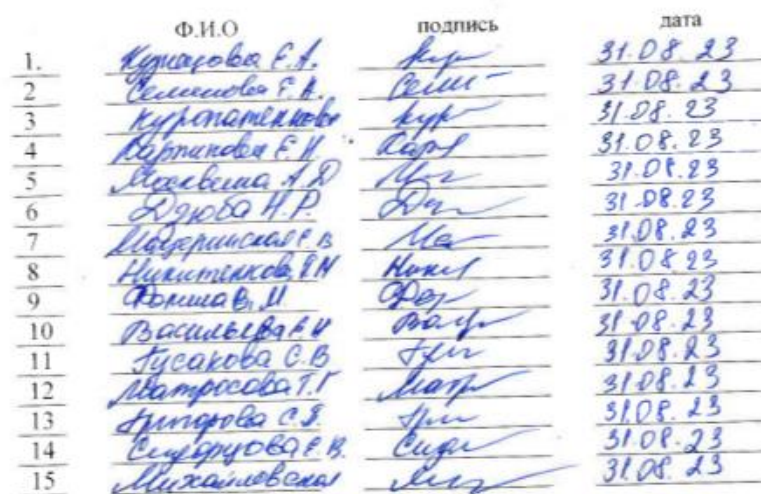 Ф.И.О подпись дата
1. Кузнецова Е.А. Куз 31.08.23
2 Семенова Е.А. Семе 31.08.23
3 Куропатенкова Кур 31.08.23
4 Мартинова Е.И 31.08.23
5 Москвина А.Д 31.08.23
6 Дзюба Н.Р. 31.08.23
7 Е.В 31.08.23
8 Никитенкова Никит 31.08.23
9 Фомина В.М 31.08.23
10 Васильева Е.И 31.08.23
11 Гусакова С.В 31.08.23
12 Матросова Т.Г Матр 31.08.23
13 Григорова С.Я. 31.08.23
14 Сидорцова Е.В. Сидо 31.08.23
15 Михайловская 31.08.23